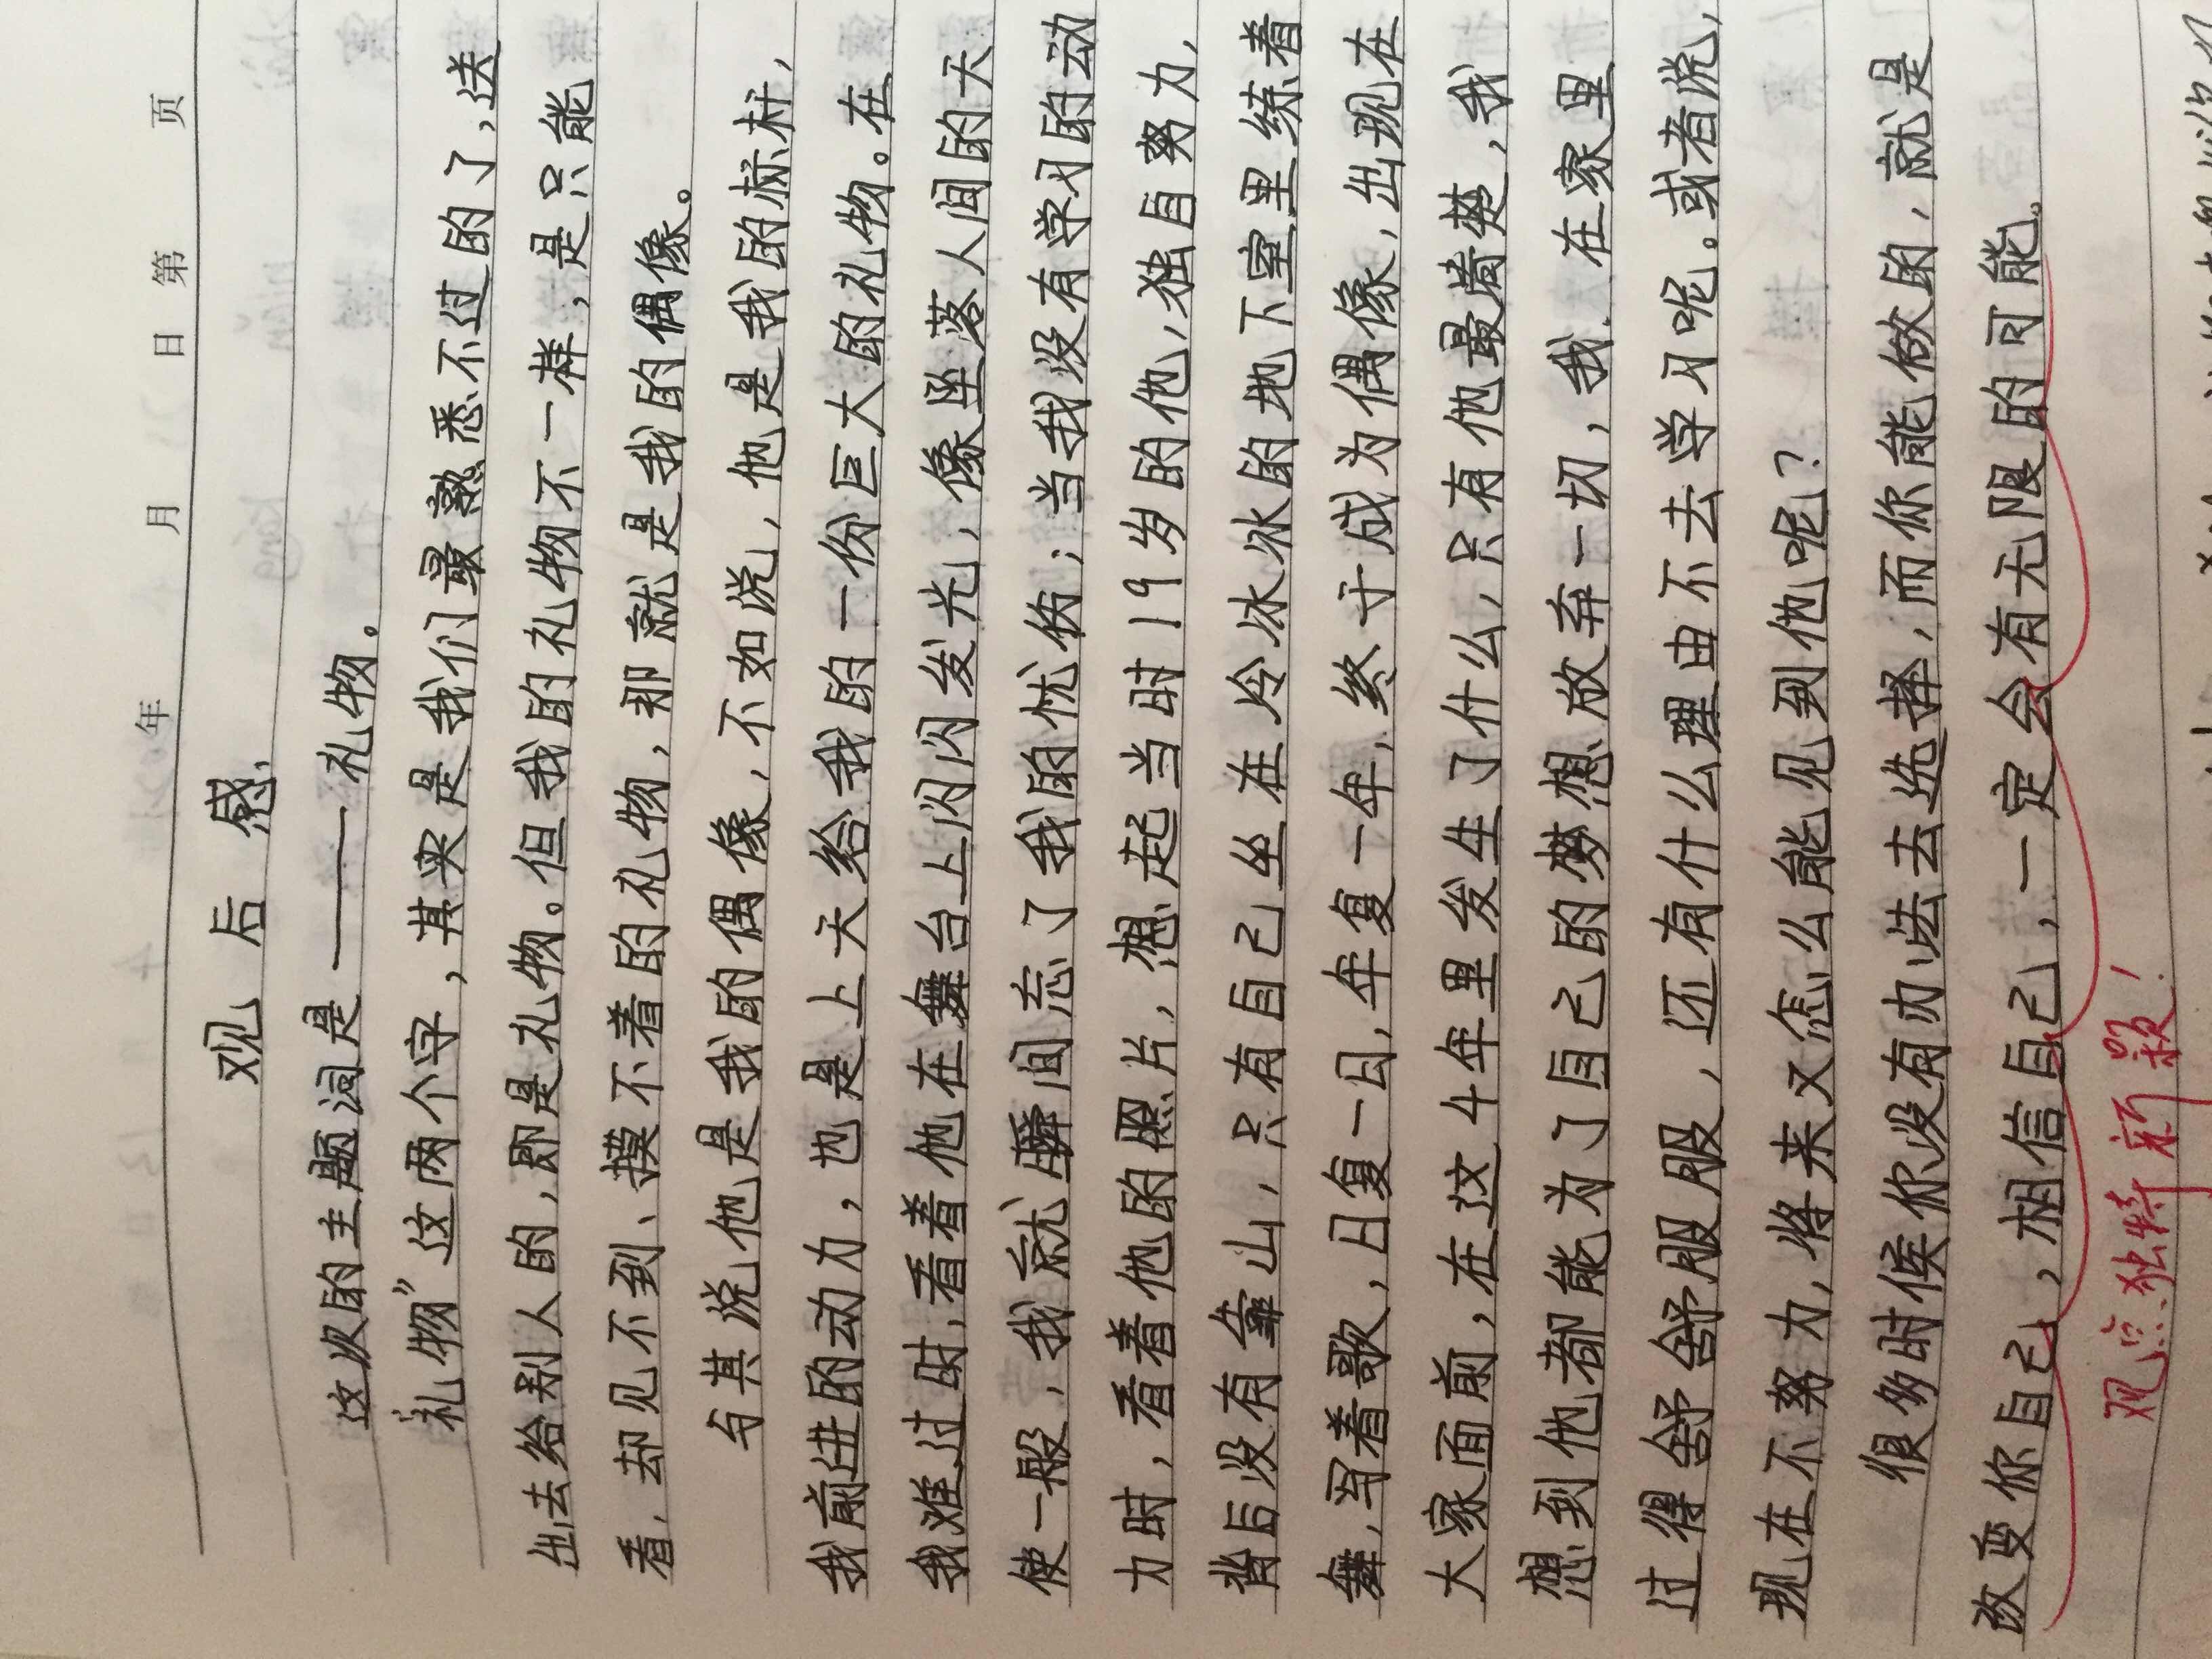 年 月 日 第 页
观后感
这次的主题词是——礼物。
“礼物”这两个字,其实是我们最熟悉不过的了,送
出去给别人的,即是礼物。但我的礼物不一样,是只能
看,却见不到、摸不着的礼物,那就是我的偶像。
与其说他是我的偶像,不如说,他是我的标杆,
我前进的动力,也是上天给我的一份巨大的礼物。在
我难过时,看着他在舞台上闪闪发光,像坠落人间的天
使一般,我就瞬间忘了我的忧伤;当我没有学习的动
力时,看着他的照片,想起当时19岁的他,独自努力,
背后没有靠山,只有自己坐在冷冰冰的地下室里练着
舞,写着歌,日复一日,年复一年,终于成为偶像,出现在
大家面前,在这4年里发生了什么,只有他最清楚,我
想到他都能为了自己的梦想放弃一切,我,在家里
过得舒舒服服,还有什么理由不去学习呢。或者说,
现在不努力,将来又怎么能见到他呢?
很多时候你没有办法去选择,而你能做的,就是
改变你自己,相信自己,一定会有无限的可能。
观点独特新颖!